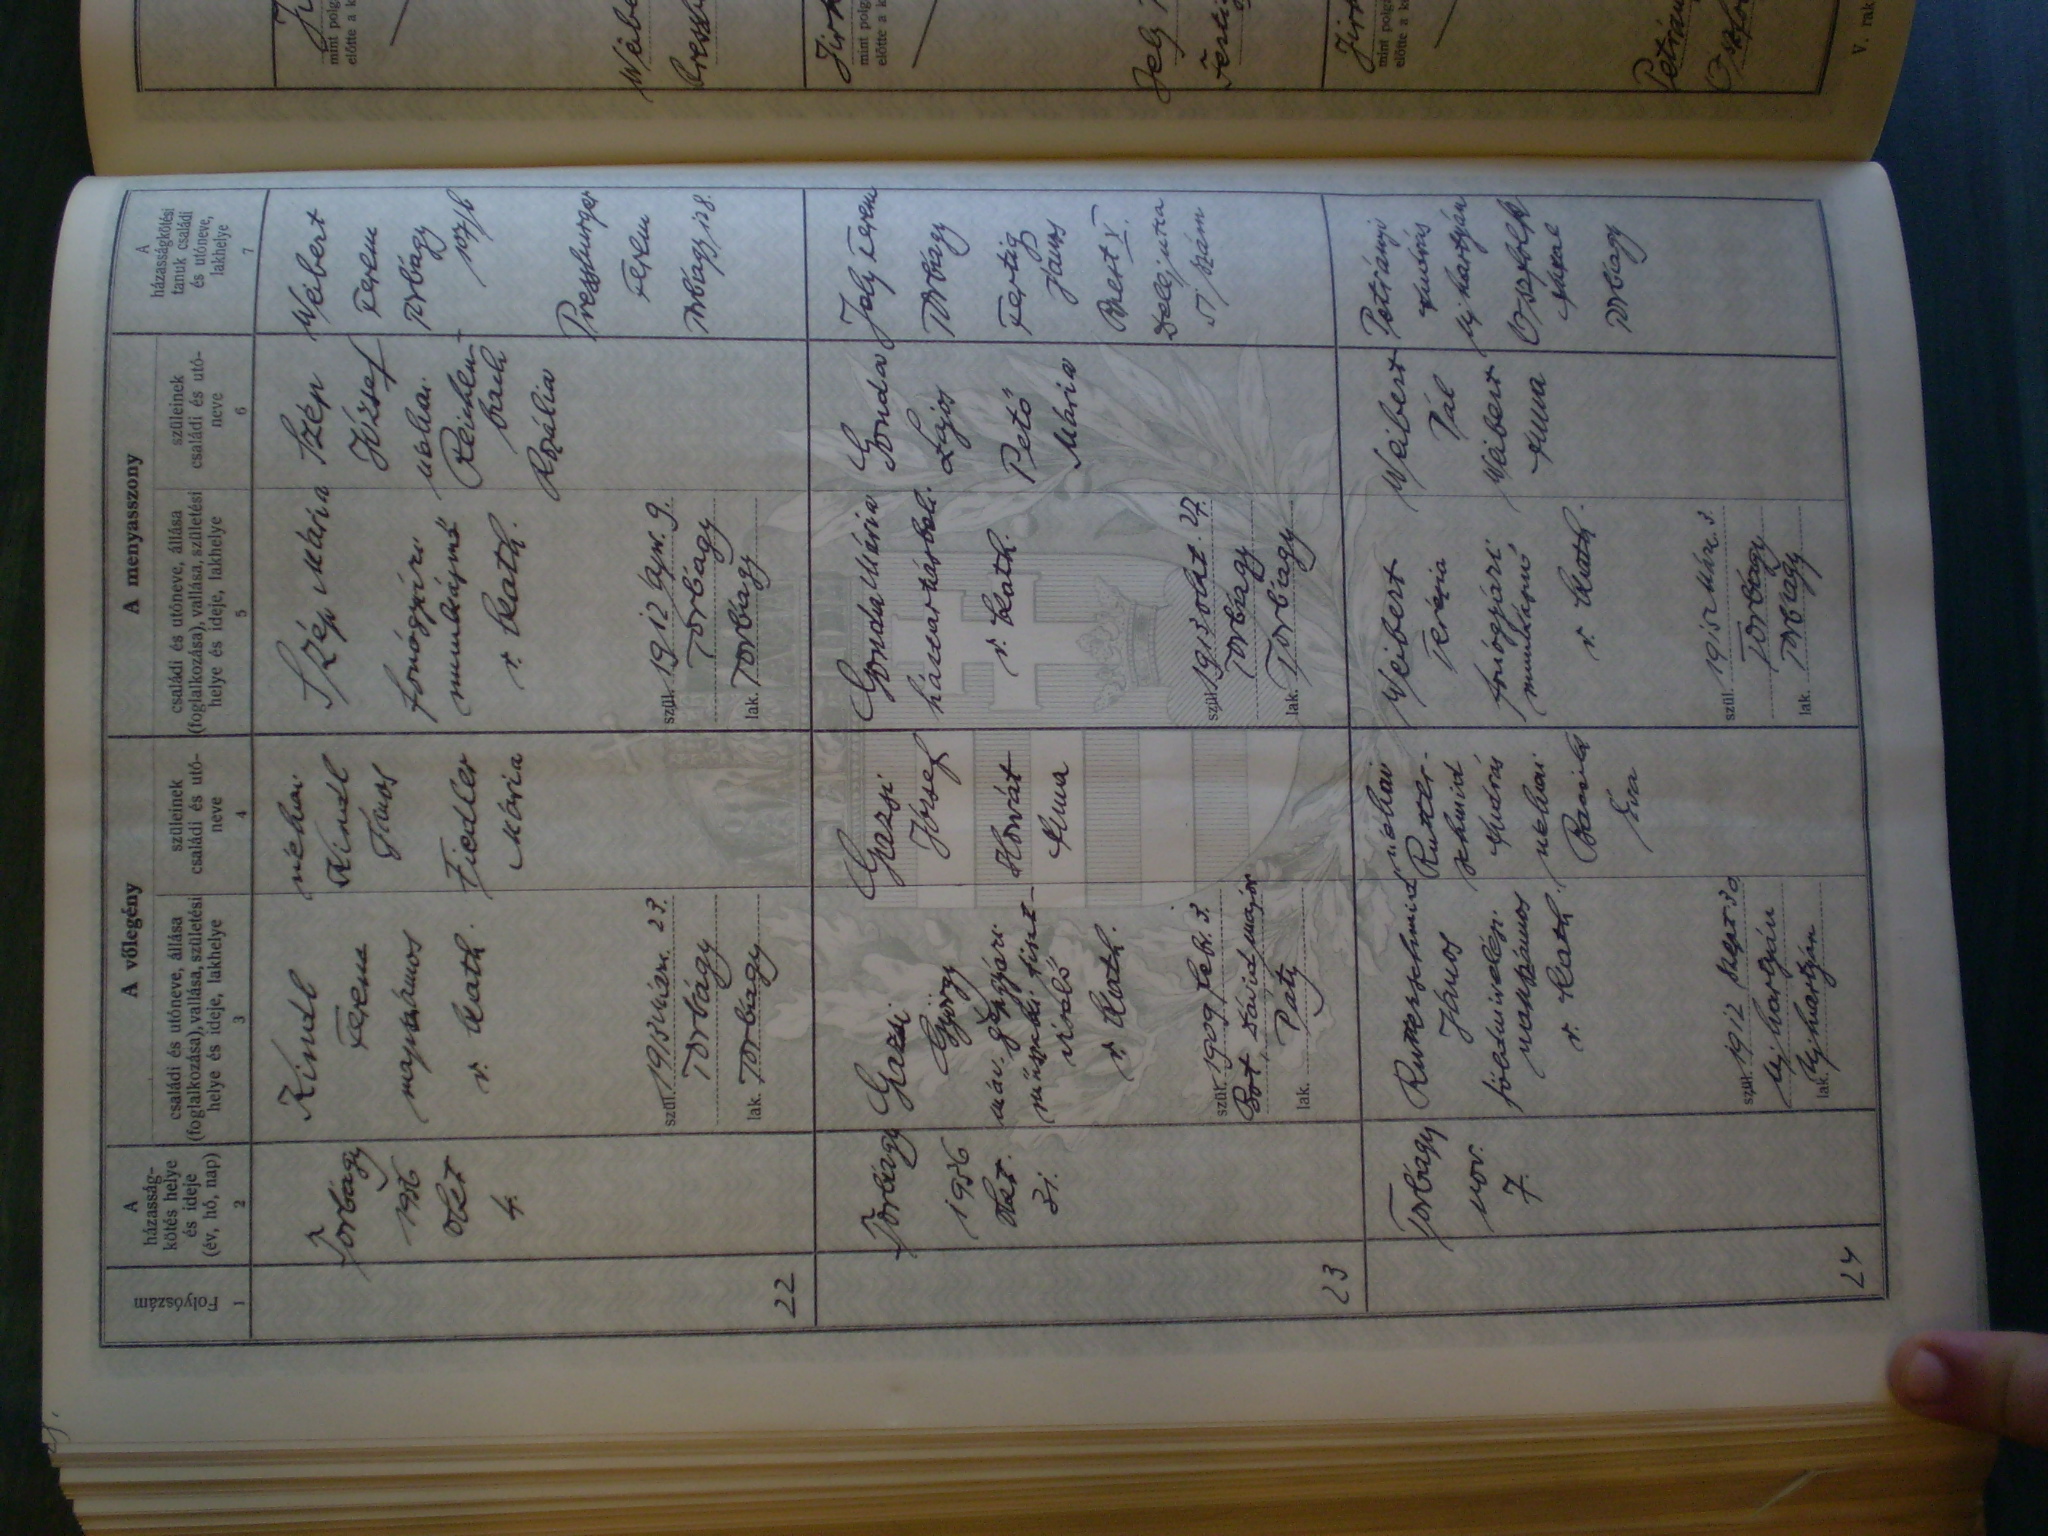 Folyószám
1
A
házasság-
kötés helye
és ideje
(év, hó, nap)
2
A vőlegény
családi és utóneve, állása
(foglalkozása), vallása, születési
helye és ideje, lakhelye
3
szüleinek
családi és utó-
neve
4
A menyasszony
családi és utóneve, állása
(foglalkozása), vallása, születési
helye és ideje, lakhelye
5
szüleinek
családi és utó-
neve
6
A
házasságkötési
tanuk családi
és utóneve,
lakhelye
7
22
Torbágy
1936
okt
4.
Kindl
Ferenc
napszámos
r. kath.
szül. 1913 márc. 23.
Torbágy
lak. Torbágy
néhai
Kindl
János
Fiedler
Mária
Szép Mária
fonógyári
munkásnő
r. kath.
szül. 1912 ápr. 9.
Torbágy
lak. Torbágy
Szép
József
néhai
Reichen-
bach
Rozália
Weibert
Ferenc
Torbágy
Pressburger
Ferenc
Torbágy 128.
23
Torbágy
1936
okt.
31.
Gazsi
György
máv. gépgyári
r. kath.
szül. 1909 febr. 3.
lak. Páty
Gazsi
József
Horvát
Anna
Gonda Mária
háztartásbeli
r. kath.
szül. 1913 okt. 27.
Torbágy
lak. Torbágy
Gonda
Lajos
Pető
Mária
Jely Ferenc
Torbágy
Fertig
János
24
Torbágy
nov.
7.
Rutterschmid
János
földmívelési
napszámos
r. kath.
szül. 1912 szept. 30.
Ujhartyán
lak. Ujhartyán
néhai
Rutter-
schmid
András
néhai
Éva
Weibert
Terézia
fonógyári
munkásnő
r. kath.
szül. 1915 márc. 3.
Torbágy
lak. Torbágy
Weibert
Pál
Weibert
Anna
Petrányi
András
Ujhartyán
Torbágy
mint polg
előtte a k
mint polg
előtte a k
mint polg
előtte a k
V. rak